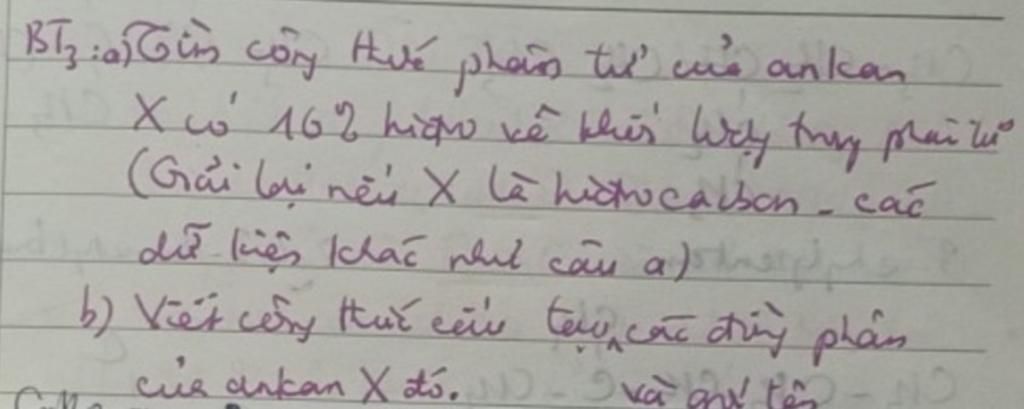 BT3: a) Tìm công thức phân tử của ankan
X có 16% hiđro về khối lượng trong phân tử
(Giải lại nếu X là hiđrocacbon - các
dữ kiện khác như câu a)
b) Viết công thức cấu tạo các đồng phân
của ankan X đó. và gọi tên